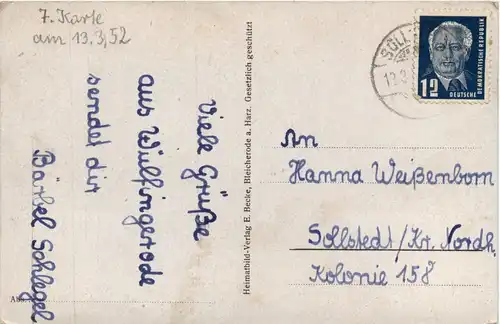 7. Karte
am 13.3.52
Viele Grüße
aus Wülfingerode
sendet dir
Bärbel Schlegel
Heimatbild-Verlag E. Becke, Bleicherode a. Harz. Gesetzlich geschützt
SOLL
12
DEUTSCHE
DEMOKRATISCHE REPUBLIK
An
Hanna Weißenborn
Sollstedt/Kr. Nordh.
Kolonie 158